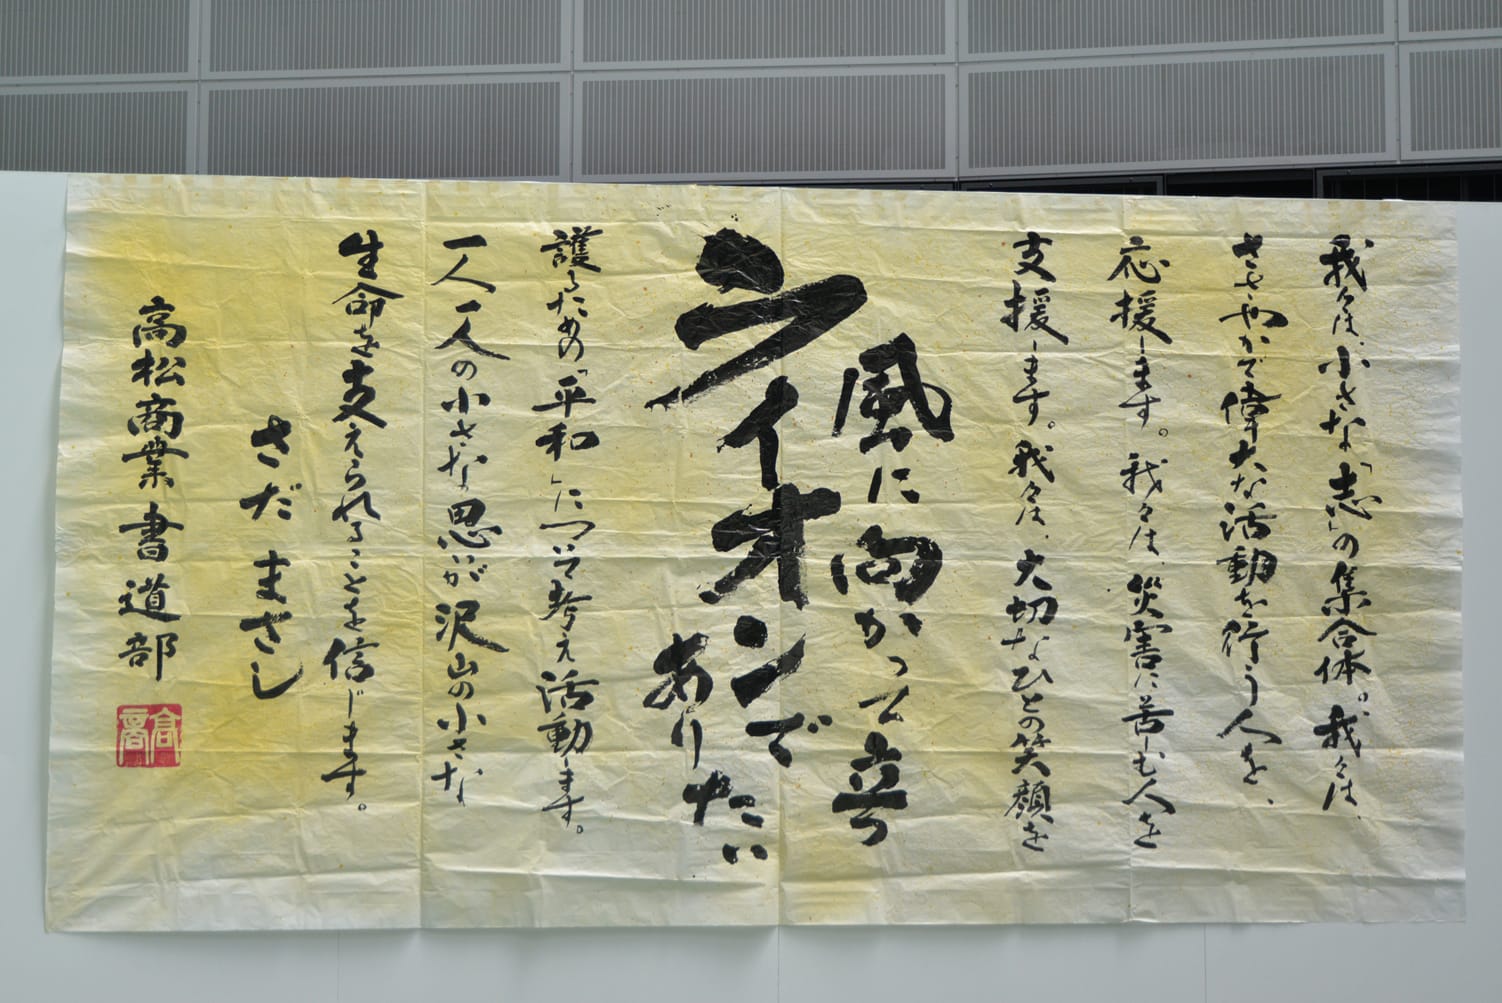 我々は、小さな「志」の集合体。我々は、
ささやかで偉大な活動を行う人を、
応援します。我々は、災害に苦しむ人を
支援します。我々は、大切なひとの笑顔を
風に向かって立つ
ライオンで
ありたい
護るための「平和」について考え活動します。
一人一人の小さな思いが沢山の小さな
生命を支えられることを信じます。
さだまさし
高松商業書道部
高商